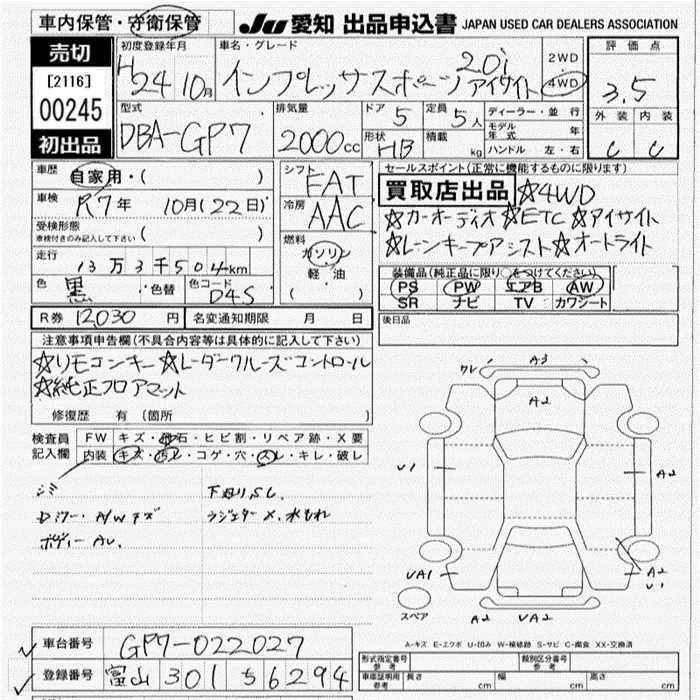 車内保管・守衛保管
JU 愛知 出品申込書 JAPAN USED CAR DEALERS ASSOCIATION
売切
[2116]
00245
初出品
初度登録年月 車名・グレード
H24 10月 インプレッサスポーツ 2.0i アイサイト
2WD
4WD
評価点
3.5
外装 内装
C C
型式 排気量 ドア 定員
DBA-GP7 2000cc 5 5人
形状 積載
HB kg
ディーラー・並行
モデル年式 年
ハンドル 左・右
車歴 自家用・( )
車検 R7年 10月(22日)
受検形態 ( )
車検付きのみ記入して下さい
走行 13万3千504km
色 黒 ・色替 色コード D4S
シフト FAT
冷房 AAC
燃料
ガソリン
軽・油
( )
セールスポイント(正常に機能するものに限ります)
買取店出品 ☆4WD
☆カーオーディオ☆ETC☆アイサイト
☆レーンキープアシスト☆オートライト
装備品(純正品に限り○をつけてください)
PS PW エアB AW
SR ナビ TV カワシート
R券 12,030円 名変通知期限 月 日
後日品
注意事項申告欄(不具合内容等は具体的に記入して下さい)
☆リモコンキー☆レーダークルーズコントロール
☆純正フロアマット
修復歴 有(箇所 )
検査員記入欄
FW キズ・飛石・ヒビ割・リペア跡・X要
内装 キズ・汚レ・コゲ・穴・スレ・キレ・破レ
シミ 下回りSC.
Dミラー・A/Wキズ ラジエターX.水もれ
ボディーAU.
クレ A3
A2
U1 A2
UA1 A2
U1
A2 UA2
スペア
A-キズ E-エクボ U-凹み W-補修跡 S-サビ C-腐食 XX-交換済
車台番号 GP7-022027
登録番号 富山 301 ち 6294
形式指定番号 参考 類別区分番号 参考
車庫証明用 参考 長さ cm 幅 cm 高さ cm